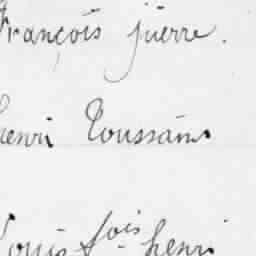 françois jüerre.
henri Toussäins
Louis fois henri